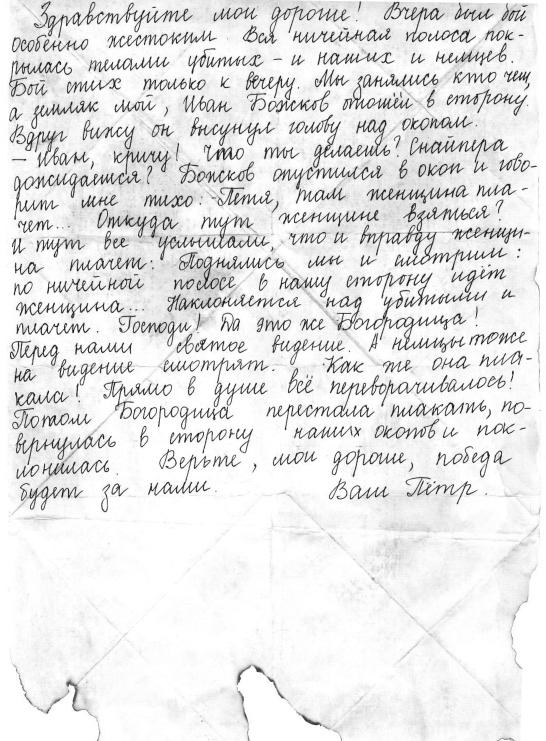 Здравствуйте мои дорогие! Вчера был бой
особенно жестоким. Вся ничейная полоса пок-
рылась телами убитых - и наших и немцев.
Бой стих только к вечеру. Мы занялись кто чем,
а земляк мой, Иван Божков отошёл в сторону.
Вдруг вижу он высунул голову над окопом.
- Иван, кричу! Что ты делаешь? Снайпера
дожидаешся? Божков опустился в окоп и гово-
рит мне тихо: - Петя, там женщина пла-
чет... Откуда тут женщине взяться?
И тут все услышали, что и вправду женщи-
на плачет. Поднялись мы и смотрим:
по ничейной полосе в нашу сторону идёт
женщина... Наклоняется над убитыми и
плачет. Господи! Да это же Богородица!
Перед нами святое видение. А немцы тоже
на видение смотрят. Как же она пла-
кала! Прямо в душе всё переворачивалось!
Потом Богородица перестала плакать, по-
вернулась в сторону наших окопов и пок-
лонилась. Верьте, мои дорогие, победа
будет за нами. Ваш Пётр.